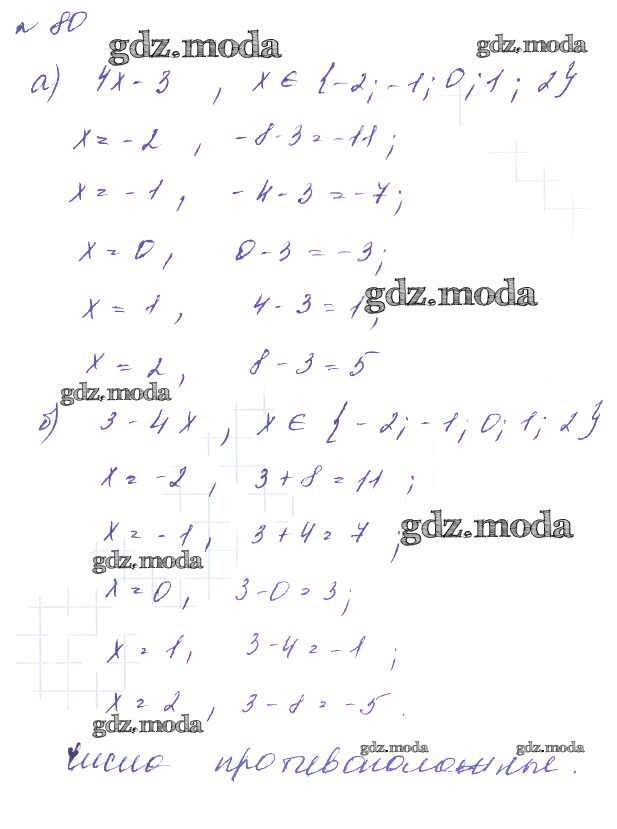 № 80
gdz.moda gdz.moda
а) 4x - 3 , x ∈ {-2; -1; 0; 1; 2}
x = -2 , -8-3 = -11;
x = -1 , -4-3 = -7;
x = 0, 0-3 = -3;
gdz.moda
x = 1, 4-3 = 1;
x = 2, 8-3 = 5
gdz.moda
б) 3-4x , x ∈ {-2; -1; 0; 1; 2}
x = -2 , 3+8 = 11 ;
gdz.moda
x = -1, 3+4 = 7 ;
gdz.moda
x = 0, 3-0 = 3;
x = 1, 3-4 = -1 ;
x = 2 , 3-8 = -5 .
gdz.moda
gdz.moda gdz.moda
Числа противоположные.